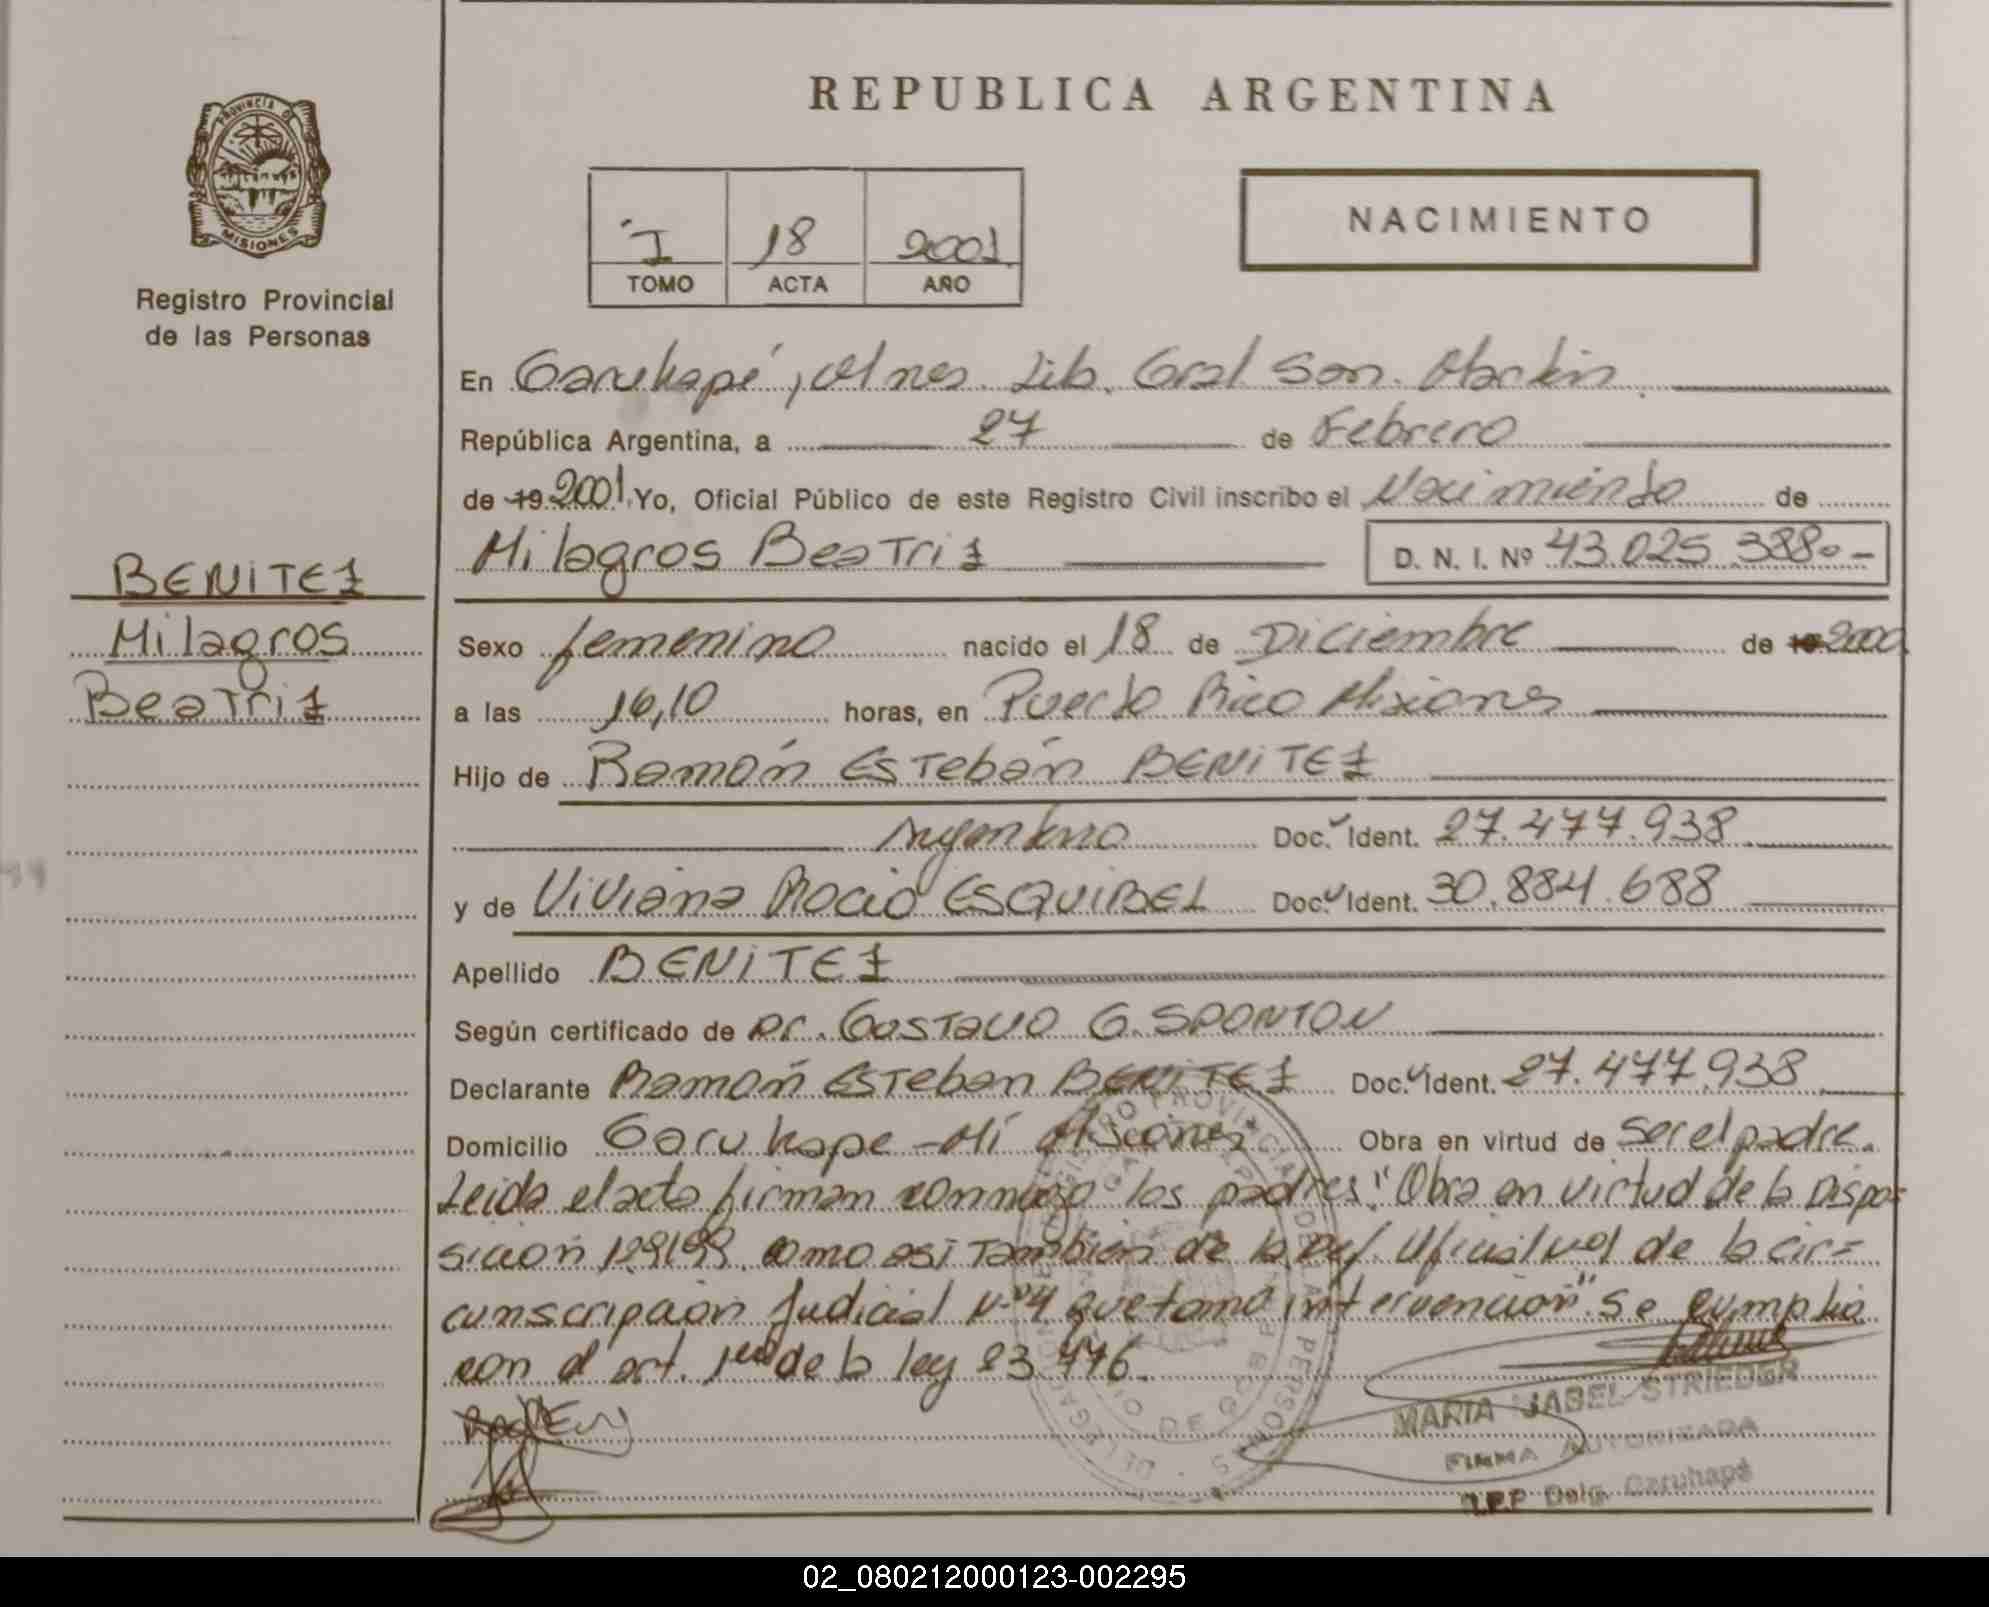 REPUBLICA ARGENTINA
PROVINCIA DE
MISIONES
Registro Provincial
de las Personas
I 18 2001
TOMO ACTA AÑO
NACIMIENTO
En Garuhapé, Mnes. Lib. Gral San Martin
República Argentina, a 27 de Febrero
de 19 2001 Yo, Oficial Público de este Registro Civil inscribo el Nacimiento de
Milagros Beatriz D. N. I. Nº 43.025.388.-
BENITEZ
Milagros
Beatriz
Sexo femenino nacido el 18 de Diciembre de 19 2000
a las 16,10 horas, en Puerto Rico Misiones
Hijo de Ramón Estebán BENITEZ
Argentino Doc. Ident. 27.477.938
y de Viviana Rocio ESQUIBEL Doc. Ident. 30.884.688
Apellido BENITEZ
Según certificado de Dr. Gustavo G. SPONTON
Declarante Ramón Esteban BENITEZ Doc. Ident. 27.477.938
Domicilio Garuhape-Mí Misiones Obra en virtud de ser el padre.
Leida el acta firman conmigo los padres. "Obra en virtud de la Dispo-
sición 129/99 como asi Tambien de la Def. Oficial Nº1 de la cir=
cunscripción Judicial Nº4 que tomó intervención". Se cumplió
con el art. 1ero de la ley 23.776.
MARIA ISABEL STRIEDER
FIRMA AUTORIZADA
R.P.P Delg. Garuhapé
02_080212000123-002295